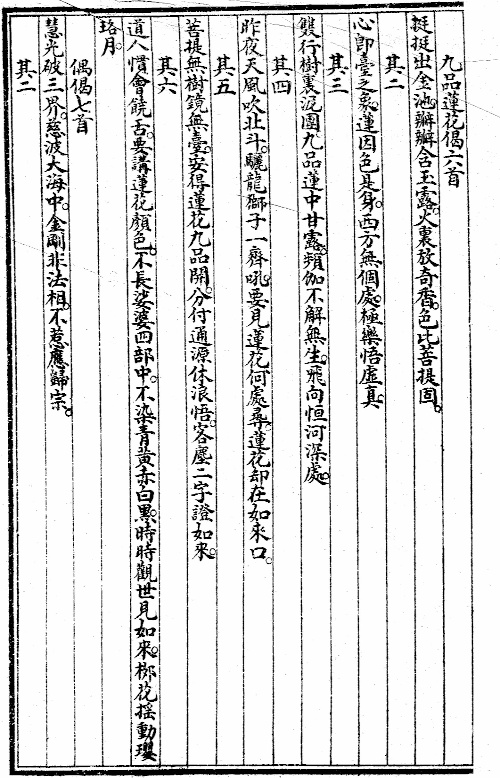 九品蓮花偈六首
挺挺出金池。瓣瓣含玉露。火裏放奇香。色比菩提固。
其二
心即臺之象。蓮因色是身。西方無個處。極樂悟虛真。
其三
雙行樹裏泥團。九品蓮中甘露。頻伽不解無生。飛向恒河深處。
其四
昨夜天風吹北斗。驪龍獅子一齊吼。要見蓮花何處尋。蓮花却在如來口。
其五
菩提無樹鏡無臺。安得蓮花九品開。分付通源休浪悟。客塵二字證如來。
其六
道人慣會饒舌。要講蓮花顏色。不長娑婆四部中。不染青黃赤白黑。時時觀世見如來。梛花搖動瓔
珞月。
偶偈七首
慧光破三界。慈波大海中。金剛非法相。不惹應歸宗。
其二